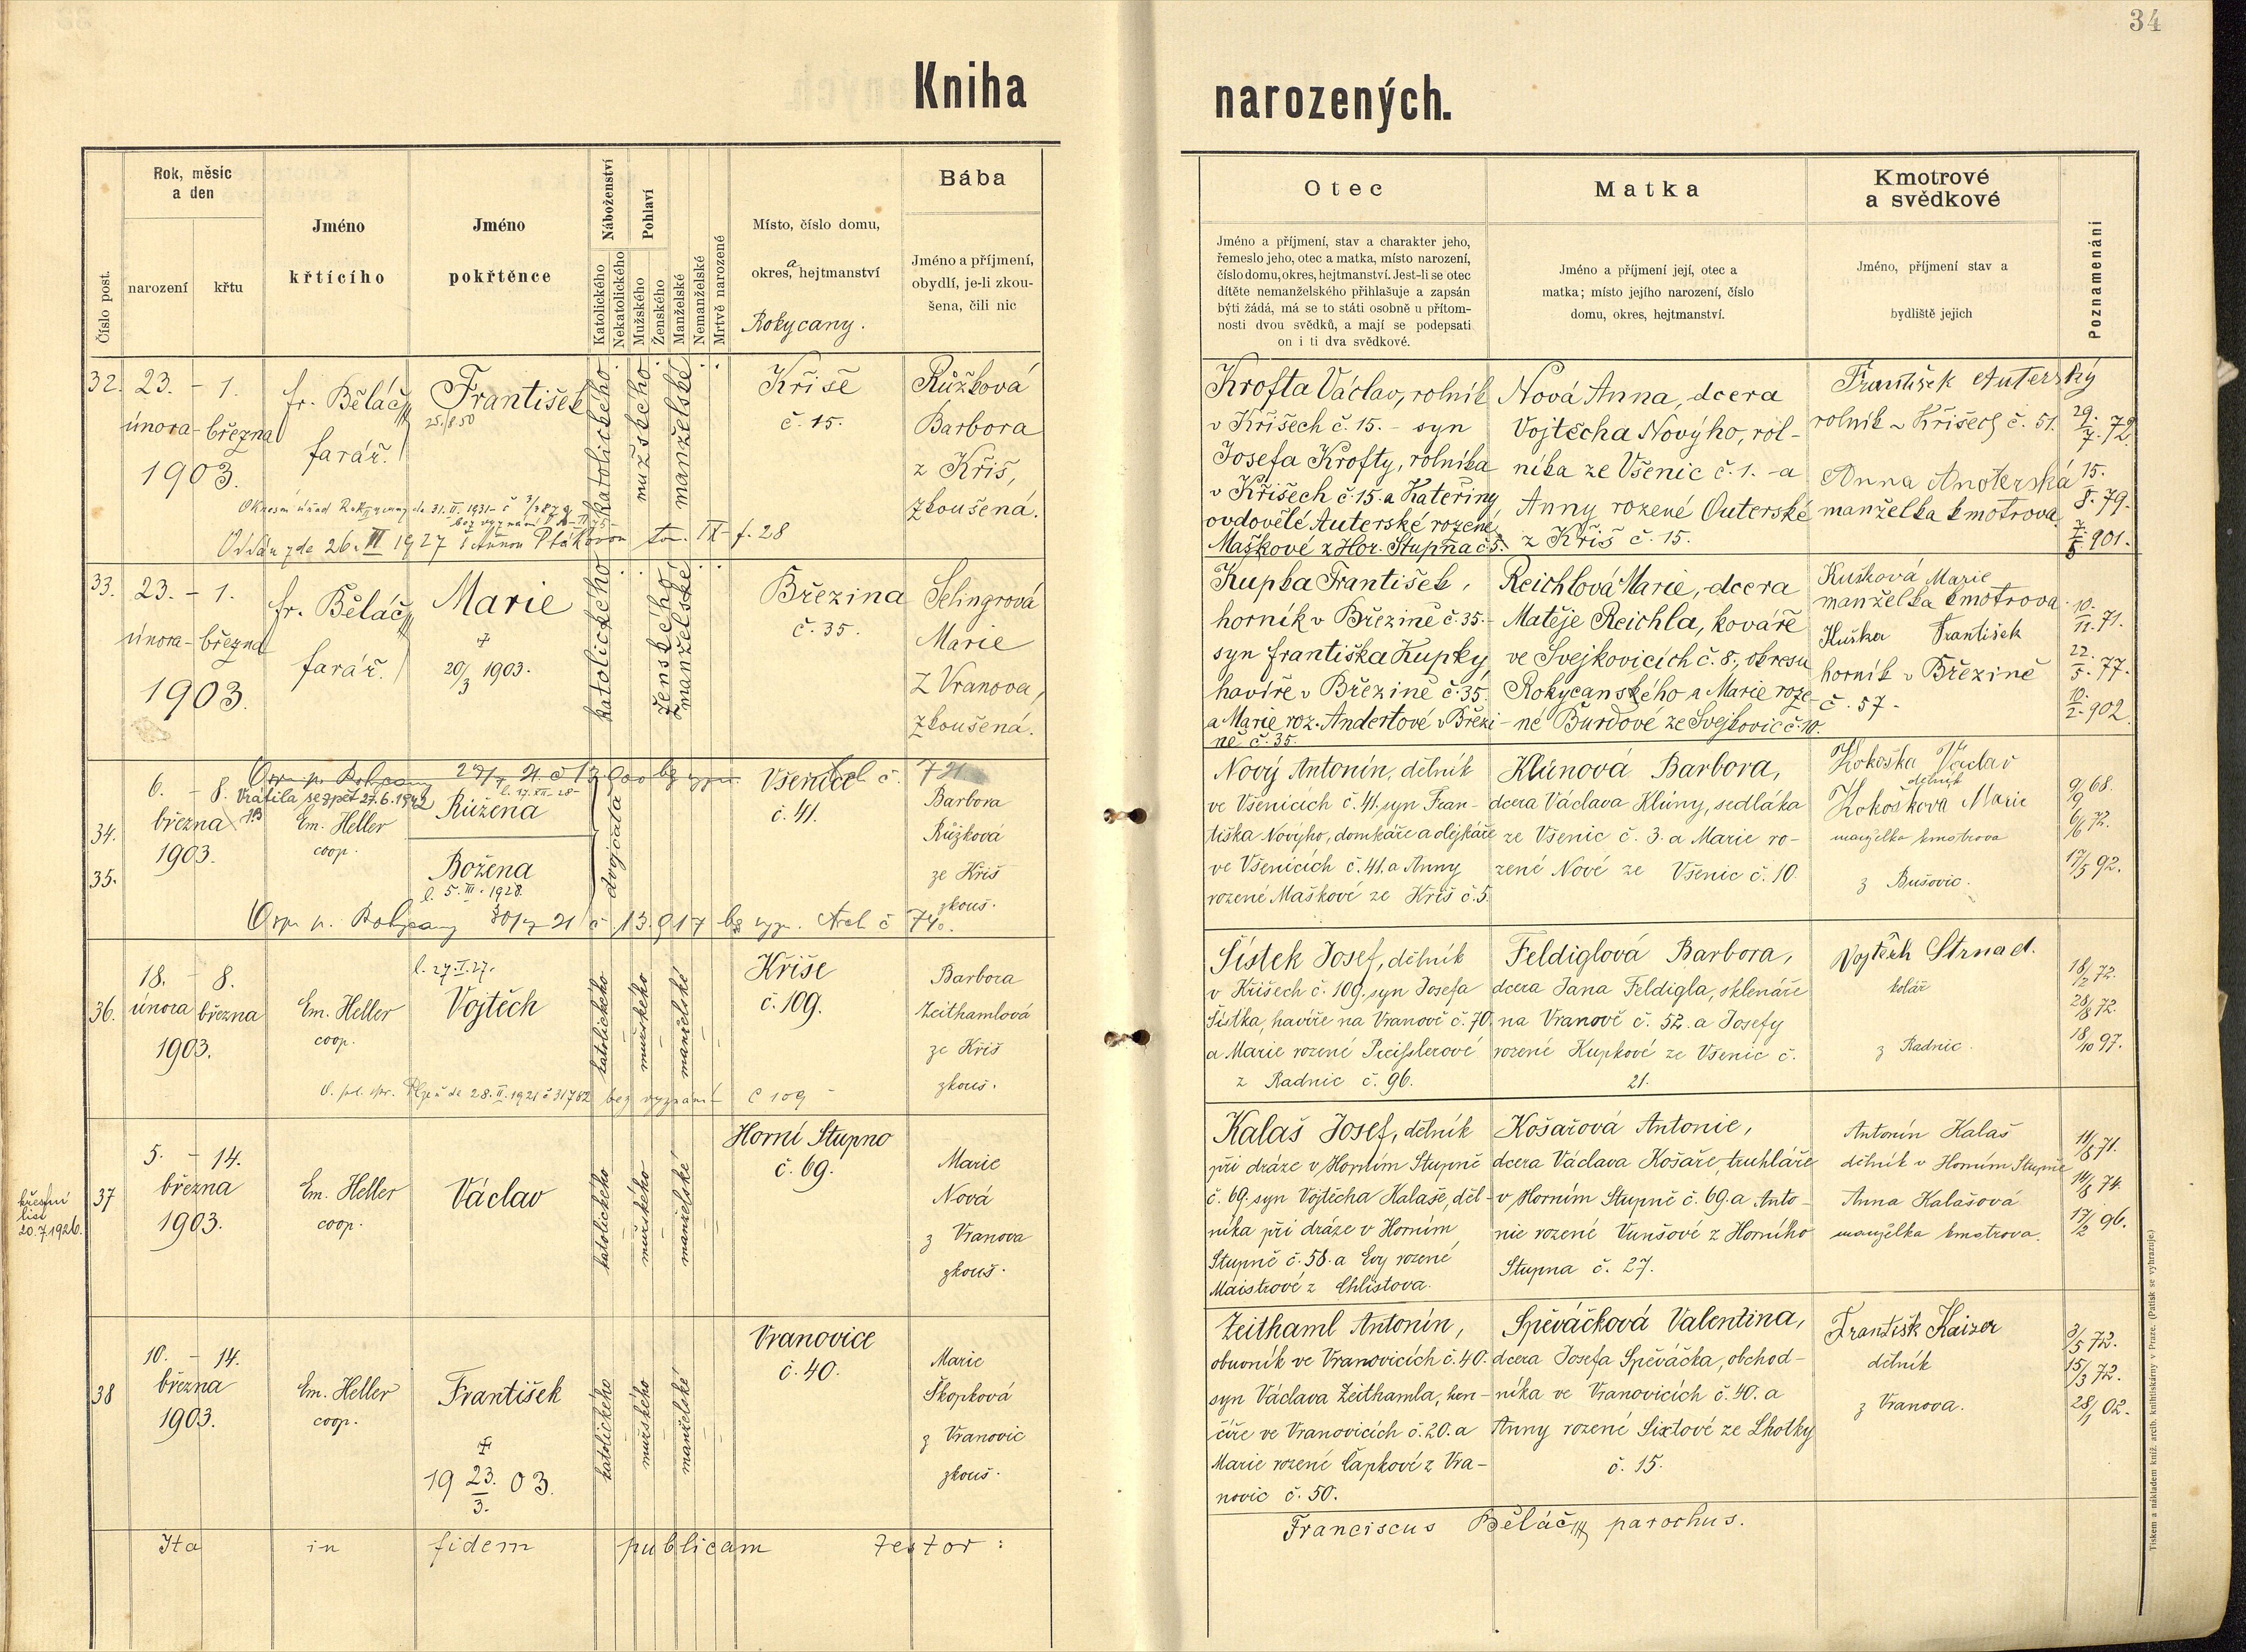 34
Kniha narozených.
Číslo post.
Rok, měsíc
a den
narození
křtu
Jméno
křtícího
Jméno
pokřtěnce
Náboženství
Katolického
Nekatolického
Pohlaví
Mužského
Ženského
Manželské
Nemanželské
Mrtvě narozené
Místo, číslo domu,
okres, a hejtmanství
Rokycany.
Bába
Jméno a příjmení,
obydlí, je-li zkou-
šena, čili nic
Otec
Jméno a příjmení, stav a charakter jeho,
řemeslo jeho, otec a matka, místo narození,
číslo domu, okres, hejtmanství. Jest-li se otec
dítěte nemanželského přihlašuje a zapsán
býti žádá, má se to státi osobně u přítom-
nosti dvou svědků, a mají se podepsati
on i ti dva svědkové.
Matka
Jméno a příjmení její, otec a
matka; místo jejího narození, číslo
domu, okres, hejtmanství.
Kmotrové
a svědkové
Jméno, příjmení stav a
bydliště jejich
Poznamenání
32.
23. - 1.
února - března
1903.
fr. Běláč
farář.
František
25./8 50
katolického
mužského
manželské
Kříše
č. 15.
Růžková
Barbora
z Kříš,
zkoušená.
Oddán de 26. VI 1927 s Annou Ptákovou tom. IX - f. 28
Krofta Václav, rolník
v Kříšech č. 15. - syn
Josefa Krofty, rolníka
v Kříšech č. 15. a Kateřiny
ovdovělé Auterské rozené
Maškové z Hor. Stupna č. 5.
Nová Anna, dcera
Vojtěcha Nového, rol-
níka ze Všenic č. 1. - a
Anny rozené Outerské
z Kříš č. 15.
František Auterský
rolník v Kříšech č. 51.
Anna Auterská
manželka kmotrova
29./7. 72
15./8. 79.
7/5 901.
33.
23. - 1.
února - března
1903.
fr. Běláč
farář.
Marie
+
20/3 1903.
katolického
ženského
manželské
Březina
č. 35.
Selingrová
Marie
z Vranova,
zkoušená.
Kupka František,
horník v Březině č. 35. -
syn františka Kupky,
havíře v Březině č. 35.
a Marie roz. Andertové v Březi-
ně č. 35.
Reichlová Marie, dcera
Matěje Reichla, kováře
ve Svejkovicích č. 8., okresu
Rokycanského a Marie roze-
né Burdové ze Svejkovic č. 10.
Kušková Marie
manželka kmotrova
Kuška František
horník v Březině
č. 57 -
10./11. 71.
22./5. 77.
10./2. 902.
34.
35.
6. - 8.
března
1903.
Vrátila se zpět 27.6.1942
Em. Heller
coop.
Růžena
Božena
l. 5. III. 1928.
dvojčata
Všenice
č. 41.
721
Barbora
Růžková
ze Kříš
zkouš.
Nový Antonín, dělník
ve Všenicích č. 41. syn Fran-
tiška Nového, domkáře a dejkáře
ve Všenicích č. 41. a Anny
rozené Maškové ze Kříš č. 5.
Klúnová Barbora,
dcera Václava Klúny, sedláka
ze Všenic č. 3. a Marie ro-
zené Nové ze Všenic č. 10.
Kokoška Václav
dělník
Kokošková Marie
manželka kmotrova
z Bušovic.
9/9 68.
6/6 72.
17/5 92.
36.
18. - 8.
února března
1903.
Em. Heller
coop.
l. 27. I. 27.
Vojtěch
katolického
mužského
manželské
Kříše
č. 109.
Barbora
Zeithamlová
ze Kříš
zkouš.
de 28. II. 1921 č 31762 bez vyznání č 109
Šístek Josef, dělník
v Kříšech č. 109. syn Josefa
Šístka, havíře na Vranově č. 70.
a Marie rozené Preisslerové
z Radnic č. 96.
Feldiglová Barbora,
dcera Jana Feldigla, sklenáře
na Vranově č. 52. a Josefy
rozené Kupkové ze Všenic č.
21.
Vojtěch Strnad.
kolář
z Radnic.
18/2 72.
28/8 72.
18/10 97.
křestní
list
20.7.1926.
37
5. - 14.
března
1903.
Em. Heller
coop.
Václav
katolického
mužského
manželské
Horní Stupno
č. 69.
Marie
Nová
z Vranova
zkouš.
Kalaš Josef, dělník
při dráze v Horním Stupně
č. 69. syn Vojtěcha Kalaše, děl-
níka při dráze v Horním
Stupně č. 58. a Evy rozené
Maistrové z Chlístova.
Košařová Antonie,
dcera Václava Košaře, truhláře
v Horním Stupně č. 69. a Anto-
nie rozené Vunšové z Horního
Stupna č. 27.
Antonín Kalaš
dělník v Horním Stupně
Anna Kalašová
manželka kmotrova.
11/8 71.
14/8 74.
17/2 96.
38
10. - 14.
března
1903.
Em. Heller
coop.
František
+
19 23./3. 03.
katolického
mužského
manželské
Vranovice
č. 40.
Marie
Škopková
z Vranovic
zkouš.
Zeithaml Antonín,
obuvník ve Vranovicích č. 40.
syn Václava Zeithamla, hon-
číře ve Vranovicích č. 20. a
Marie rozené Čapkové z Vra-
novic č. 50.
Spěváčková Valentina,
dcera Josefa Spěváčka, obchod-
níka ve Vranovicích č. 40. a
Anny rozené Sixtové ze Lhotky
č. 15.
František Kaizer
dělník
z Vranova.
3/5 72.
15/3 72.
28/1 02.
Ita in fidem publicam testor:
Franciscus Běláč parochus.
Tiskem a nákladem kníž. arcib. knihtiskárny v Praze. (Patisk se vyhrazuje.)